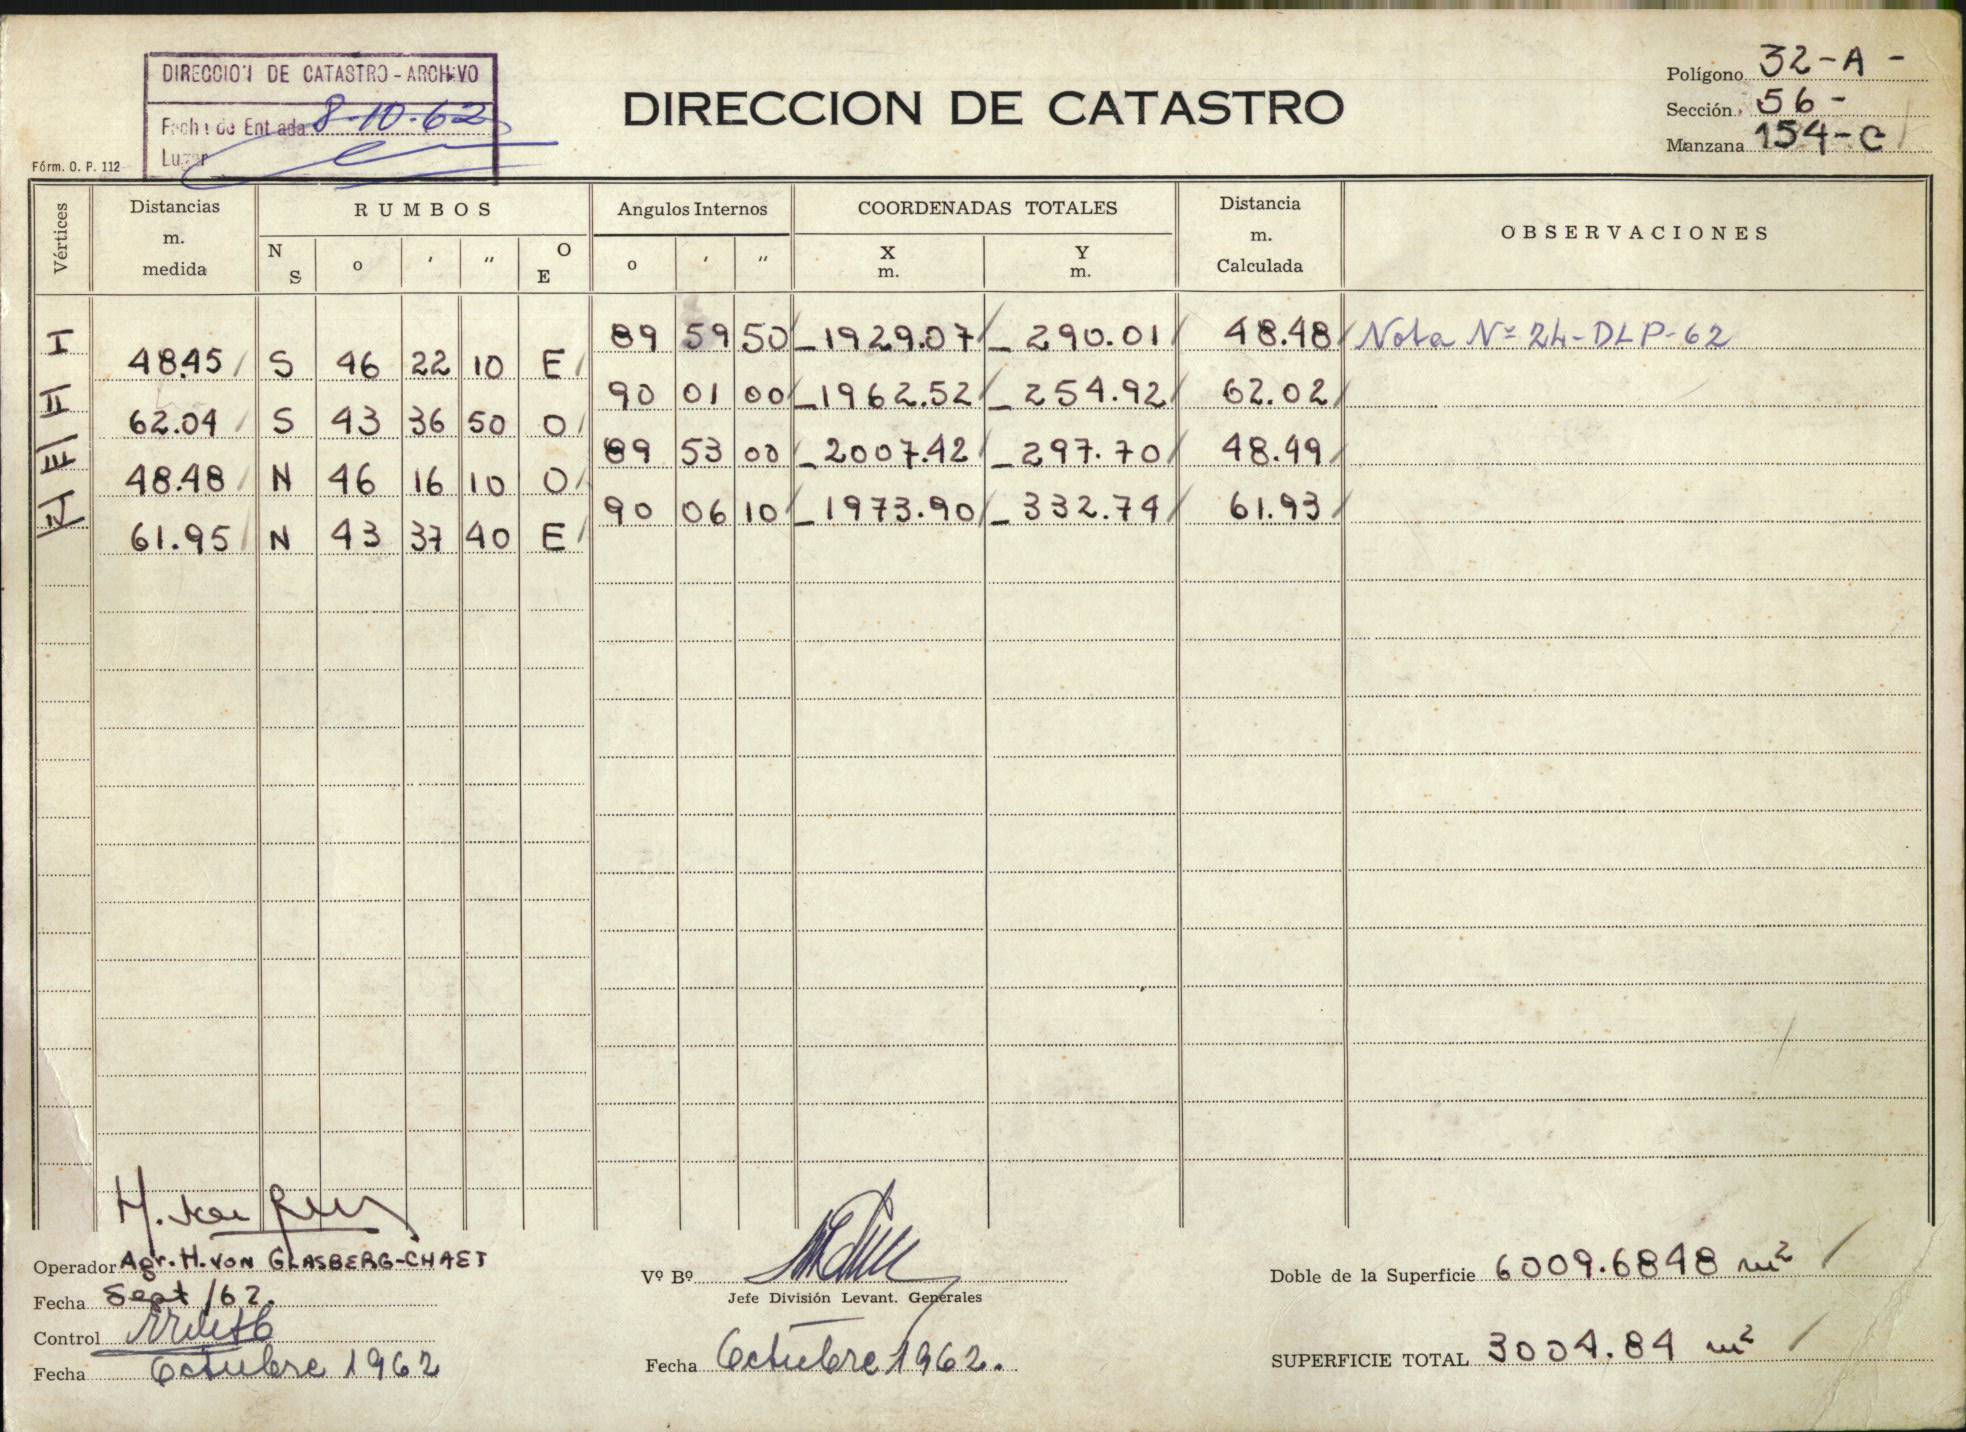 DIRECCION DE CATASTRO - ARCHIVO
Fecha de Entrada 8-10-62
Lugar
Fórm. O. P. 112
DIRECCION DE CATASTRO
Polígono 32-A-
Sección 56-
Manzana 154-C
Vértices
Distancias m. medida
RUMBOS
N S ° ′ ″ O E
Angulos Internos
° ′ ″
COORDENADAS TOTALES
X m. Y m.
Distancia m. Calculada
OBSERVACIONES
I 89 59 50 -1929.07 -290.01 48.48 Nota Nº 24-DLP-62
48.45 S 46 22 10 E
II 90 01 00 -1962.52 -254.92 62.02
62.04 S 43 36 50 O
III 89 53 00 -2007.42 -297.70 48.49
48.48 N 46 16 10 O
IV 90 06 10 -1973.90 -332.74 61.93
61.95 N 43 37 40 E
Operador Agr. H. VON GLASBERG-CHAET
Fecha Sept/62.
Control
Fecha Octubre 1962
Vº Bº
Jefe División Levant. Generales
Fecha Octubre 1962.
Doble de la Superficie 6009.6848 m²
SUPERFICIE TOTAL 3004.84 m²